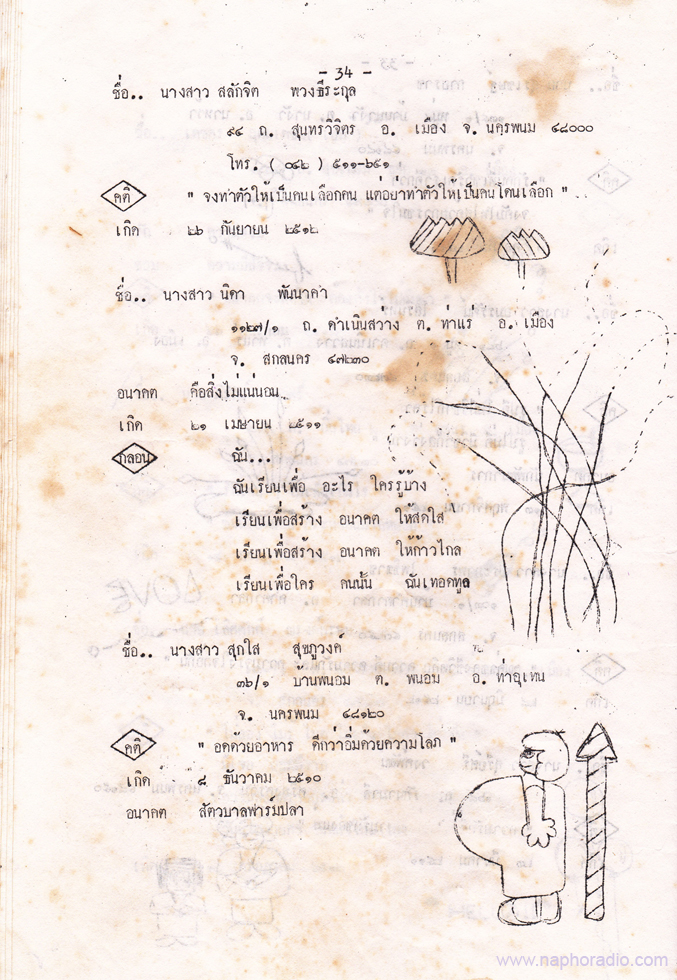 - 34 -
ชื่อ.. นางสาว สลักจิต พวงธีระกุล
๙๔ ถ. สุนทรวิจิตร อ. เมือง จ. นครพนม ๔๘๐๐๐
โทร. ( ๐๔๒ ) ๕๑๑-๖๕๑
คติ " จงทำตัวให้เป็นคนเลือกคน แต่อย่าทำตัวให้เป็นคนโดนเลือก "
เกิด ๒๖ กันยายน ๒๕๑๒
ชื่อ.. นางสาว นิดา พันนาดา
๑๑๒๗/๑ ถ. ดำเนินสว่าง ต. ท่าแร่ อ. เมือง
จ. สกลนคร ๔๗๒๓๐
อนาคต คือสิ่งไม่แน่นอน
เกิด ๒๑ เมษายน ๒๕๑๑
กลอน ฉัน...
ฉันเรียนเพื่อ อะไร ใครรู้บ้าง
เรียนเพื่อสร้าง อนาคต ให้สดใส
เรียนเพื่อสร้าง อนาคต ให้ก้าวไกล
เรียนเพื่อใคร คนนั้น ฉันเทอดทูล
ชื่อ.. นางสาว สุกใส สุขภูวงค์
๓๖/๑ บ้านพนอม ต. พนอม อ. ท่าอุเทน
จ. นครพนม ๔๘๑๒๐
คติ " อดด้วยอาหาร ดีกว่าอิ่มด้วยความโลภ "
เกิด ๘ ธันวาคม ๒๕๑๐
อนาคต สัตวบาลฟาร์มปลา
www.naphoradio.com